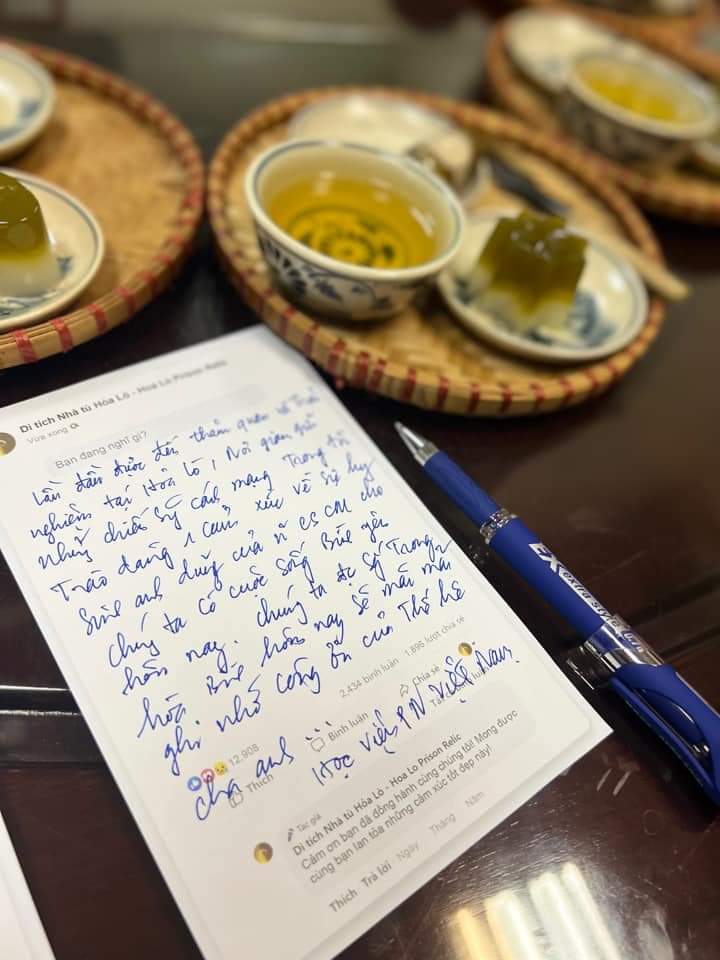 Di tích Nhà tù Hỏa Lò - Hoa Lo Prison Relic
Vừa xong
Bạn đang nghĩ gì?
Lần đầu được đến thăm quan và trải
nghiệm tại Hỏa Lò, Nơi giam giữ
những chiến sỹ cách mạng Trong tôi
Trào dâng 1 cảm xúc về sự hy
sinh anh dũng của n cs CM cho
chúng ta có cuộc sống bình yên
hôm nay. chúng ta đc sống Trong
hòa bình hôm nay sẽ mãi mãi
ghi nhớ công ơn của Thế hệ
cha anh ...
Học viện PN Việt Nam.
12.908
2.434 bình luận 1.895 lượt chia sẻ
Thích
Bình luận
Chia sẻ
Tác giả
Di tích Nhà tù Hỏa Lò - Hoa Lo Prison Relic
Cảm ơn bạn đã đồng hành cùng chúng tôi! Mong được
cùng bạn lan tỏa những cảm xúc tốt đẹp này!
Thích Trả lời Ngày Tháng Năm